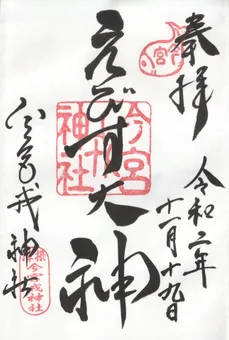 奉拝
令和二年
十一月十九日
えびす大神
今宮戎神社
今宮
神社